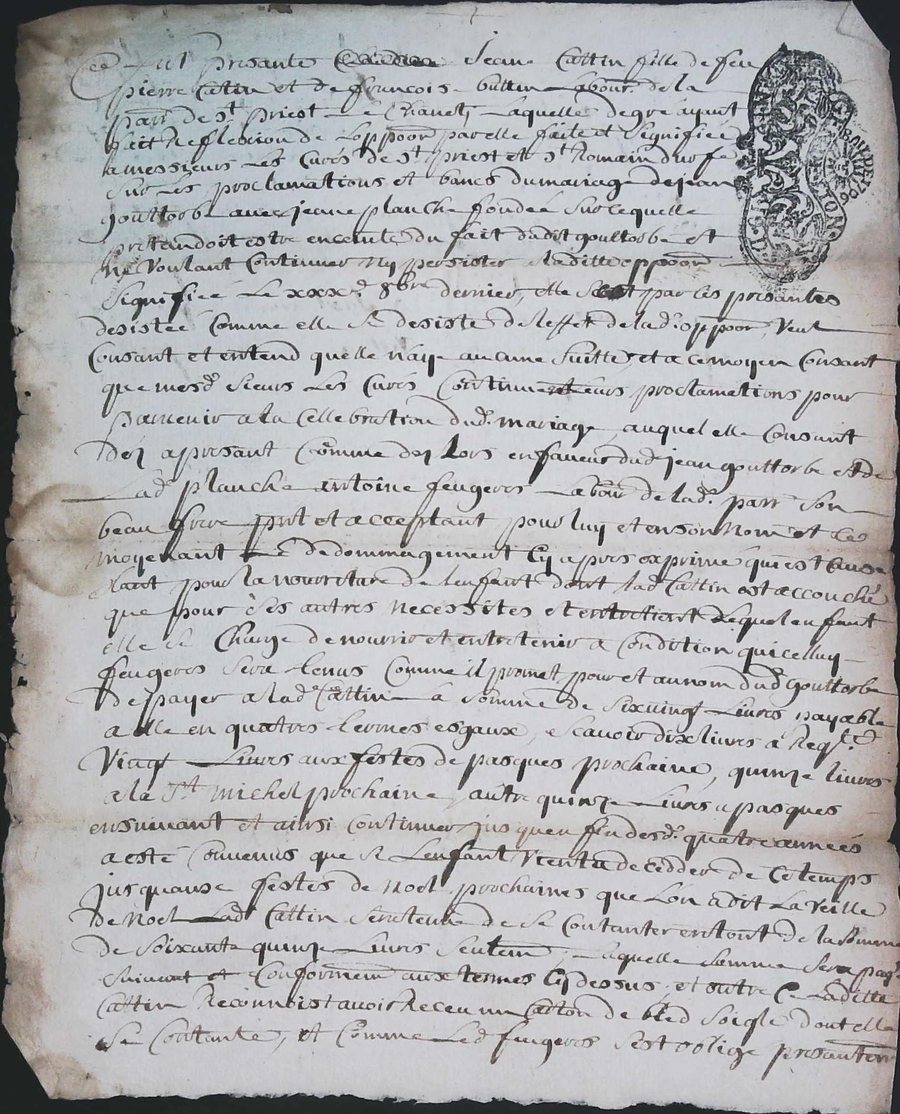 Fut presante Jeane Cattin fille de feu
pierre Cattin et de francoise buttin Labour. de la
parr. de st. priest Laquelle de gre ayant
fait Reflexion de Loppoon par elle faite et signifiée
a messieurs Les Curés de st. priest et st. Romain durfé
sur Les proclamations et bancs du mariage de jean
gouttorbe avec jeane planche fondée sur ce quelle
pretandoit estre enceinte du fait dudit gouttorbe et
ne Voulant Continuer ny persister a laditte oppoon
signifiée Le xxx.e 8bre dernier, elle sest par ces presantes
desistée Comme elle se desiste de leffet de lad. oppoon, Veut
Consant et entend quelle naye aucune suitte, et a ce moyen Consant
que mesd. sieurs Les Curés Continuent leurs proclamations pour
parvenir a la Cellebration dud. mariage, auquel elle Consant
dez a presant Comme dez Lors en faveur dud. jean gouttorbe et de
Lad. planche antoine feugeres Labour de lad. parr. son
beau frere pnt et acceptant pour luy et en son nom et Ce
moyenant Le dedommagement Cy apres exprimé quiest
tant pour la nourriture de lenfant dont lad. Cattin est accouchée
que pour ses autres necessites et entretient Lequel enfant
elle se Charge de nourrir et entretenir a Condition quicelluy
feugeres sera tenus Comme il promet pour et au nom dud. gouttorbe
de payer a lad. Cattin la somme de six vingt Livres payable
a elle en quatres termes esgaux, escavoir dix livres a
Vingt Livres aux festes de pasques prochaine, quinze livres
a la st. michel prochaine, autre quinze Livres a pasques
ensuivant et ainsi Continuer jusques en fin desd. quatre années
a esté Convenus que si Lenfant Vient a decedder de Ce temps
jusquause festes de noel prochaines que Lon a dit La Veille
de noel Lad. Cattin sera tenue de se Contanter en tout de la somme
de soixante quinze Livres seulem., Laquelle somme sera
suivant et Conformem. aux termes Cy dessus, et outre Ce Laditte
Cattin Reconnoist avoir Receu un Carton de bled soigle dont elle
se Contante, et Comme Led. feugeres sest oblige presantem